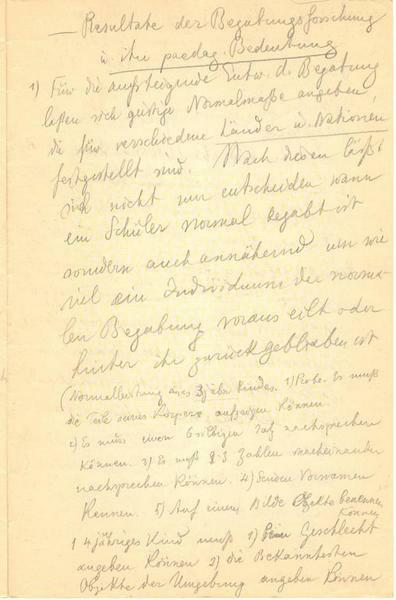 — Resultate der Begabungsforschung
u. ihre paedag. Bedeutung
1) Für die aufsteigende Entw. d. Begabung
lassen sich geistige Normalmaße angeben,
die für verschiedene Länder u. Nationen
festgestellt sind. Nach diesen läßt
sich nicht nur entscheiden wann
ein Schüler normal begabt ist
sondern auch annähernd um wie
viel ein Individuum der norma-
len Begabung voraus eilt oder
hinter ihr zurückgeblieben ist
(Normalleistung eines 3jähr Kindes. 1) Probe. Es muß
die Teile seines Körpers aufzeigen können
2) Es muss einen 6silbigen Satz nachsprechen
können. 3) Es muß 2-3 Zahlen nacheinander
nachsprechen können. 4) Seinen Vornamen
kennen. 5) Auf einem Bilde Objekte benennen
können
1 4jähriges Kind muß 1) sein Geschlecht
angeben können 2) die bekanntesten
Objekte der Umgebung angeben können